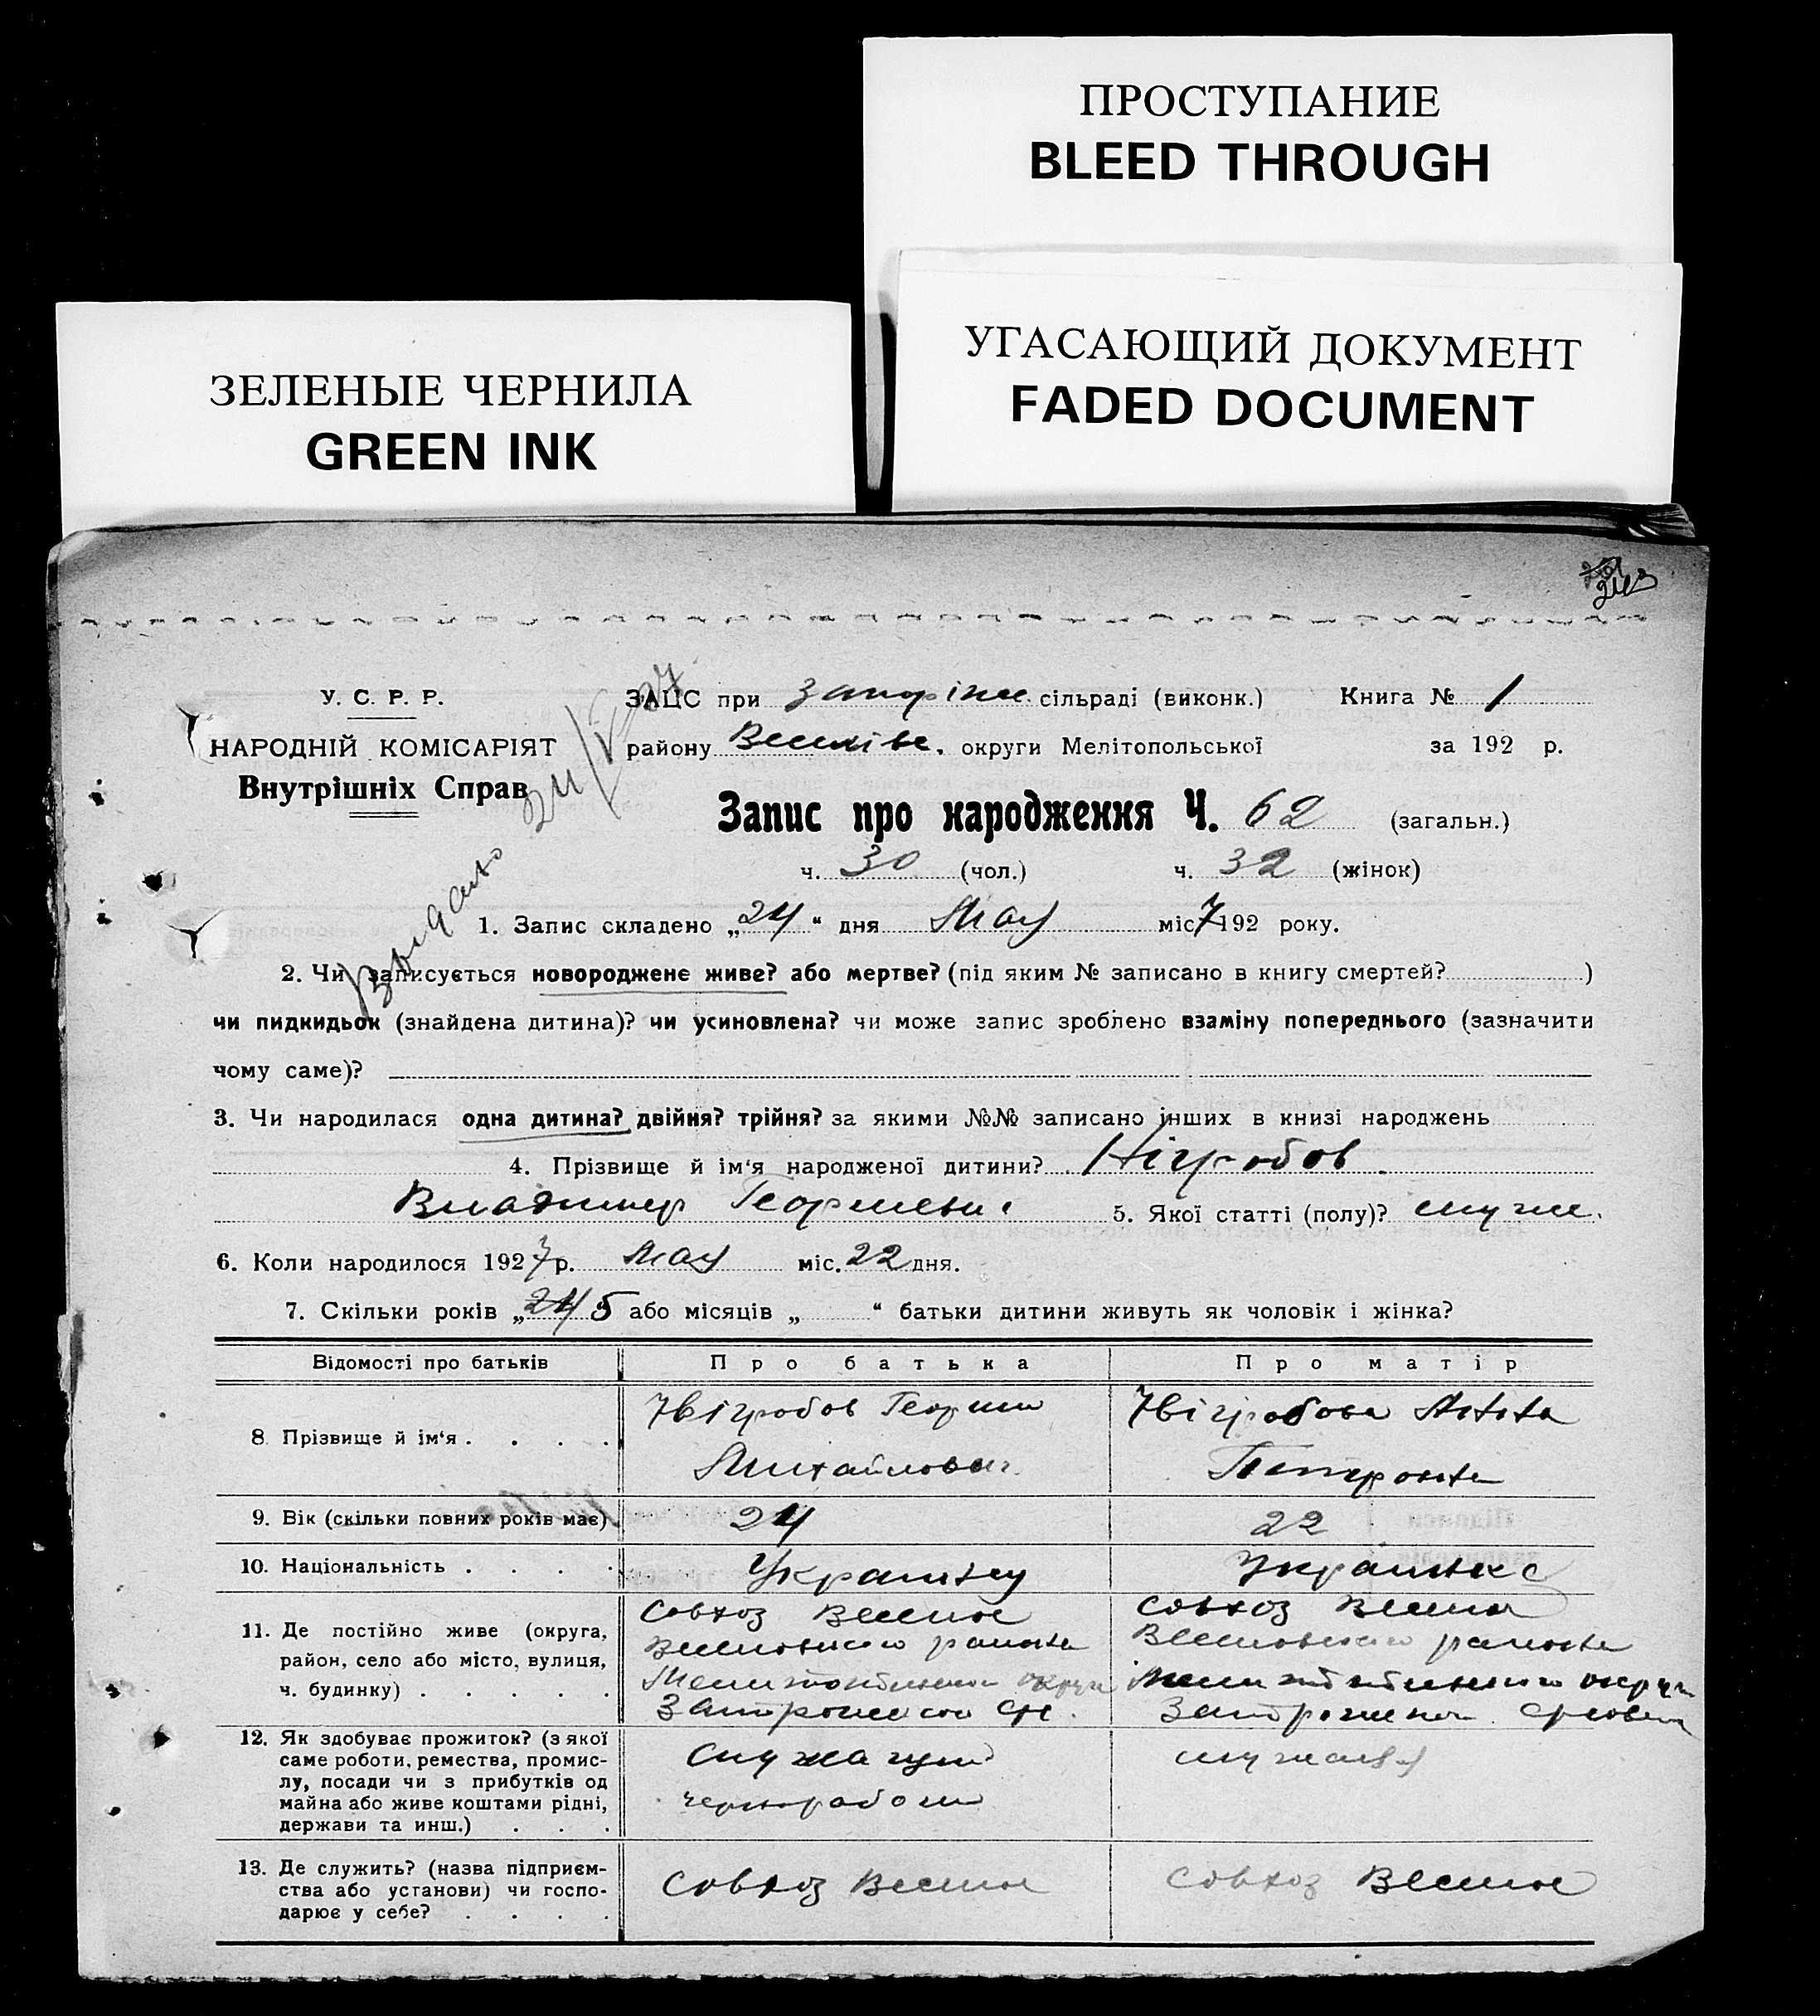 ПРОСТУПАНИЕ
BLEED THROUGH
УГАСАЮЩИЙ ДОКУМЕНТ
FADED DOCUMENT
ЗЕЛЕНЫЕ ЧЕРНИЛА
GREEN INK
243
У. С. Р. Р.
НАРОДНІЙ КОМІСАРІЯТ
Внутрішніх Справ
ЗАЦС при сільраді (виконк.) Книга № 1
району округи Мелітопольської за 192 р.
Запис про народження Ч. 62 (загальн.)
ч. 30 (чол.) ч. 32 (жінок)
1. Запис складено „24“ дня Мая міс. 7 192 року.
2. Чи записується новороджене живе? або мертве? (під яким № записано в книгу смертей? )
чи пидкидьок (знайдена дитина)? чи усиновлена? чи може запис зроблено взаміну попереднього (зазначити
чому саме)?
3. Чи народилася одна дитина? двійня? трійня? за якими №№ записано інших в книзі народжень
4. Прізвище й ім'я народженої дитини?
Владимир Георгиевич 5. Якої статті (полу)?
6. Коли народилося 1927 р. Мая міс. 22 дня.
7. Скільки років „24 5 або місяців „ “ батьки дитини живуть як чоловік і жінка?
Відомості про батьків Про батька Про матір
8. Прізвище й ім'я . . . . Георгий
Михайлович Петровна
9. Вік (скільки повних років має) 24 22
10. Національність . . . .
11. Де постійно живе (округа, совхоз Веселое совхоз Веселое
район, село або місто, вулиця, Веселовского района Веселовского района
ч. будинку) . . . . . Мелитопольского округи Мелитопольского округи
12. Як здобуває прожиток? (з якої
саме роботи, ремества, промис- служащий
лу, посади чи з прибутків од
майна або живе коштами рідні, чернорабочий
держави та инш.) . . .
13. Де служить? (назва підприєм-
ства або установи) чи госпо- совхоз Веселое совхоз Веселое
дарює у себе? . . . .